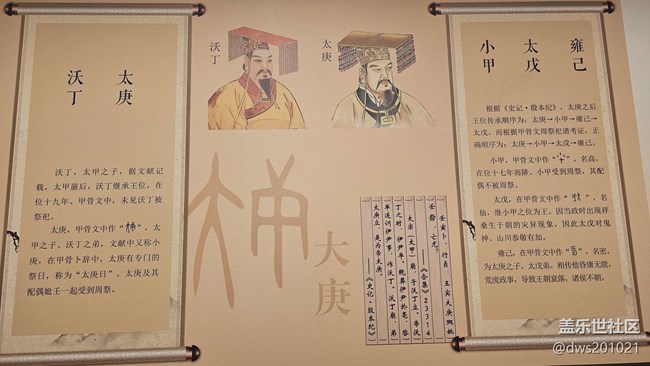 沃丁
太庚
沃丁，太甲之子，据文献记
载，太甲崩后，沃丁继承王位，在
位十九年，甲骨文中，未见沃丁被
祭祀。
太庚，甲骨文中作“”，太
甲之子，沃丁之弟，文献中又称小
庚，在甲骨卜辞中，太庚有专门的
祭日，称为“太庚日”，太庚及其
配偶妣壬一起受到周祭。
沃丁
太庚
大庚
壬寅卜，行贞，王宾大庚
壬
，亡尤。
——《合集》23314
太宗（太甲）崩，子沃丁立。帝沃
丁之时，伊尹卒。既葬伊尹於亳，咎
单遂训伊尹事，作沃丁。沃丁崩，弟
太庚立，是为帝太庚。
——《史记·殷本纪》
小甲
太戊
雍己
根据《史记·殷本纪》，太庚之后
王位传承顺序为：太庚→小甲→雍己→
太戊。而根据甲骨文周祭祀谱考证，正
确顺序为：太庚→小甲→太戊→雍己。
小甲，甲骨文中作“”，名高，
在位十七年而崩。小甲受到周祭，其配
偶不被周祭。
太戊，在甲骨文中作“”，名
伷，继小甲之位为王。因当政时出现祥
桑生于朝的灾异现象，因此太戊对鬼
神、山川恭敬有加。
雍己，在甲骨文中作“”，名密，
为太庚之子，太戊弟，相传他昏庸无能，
荒废政事，导致王朝衰落，诸侯不朝。
盖乐世社区
@dws201021